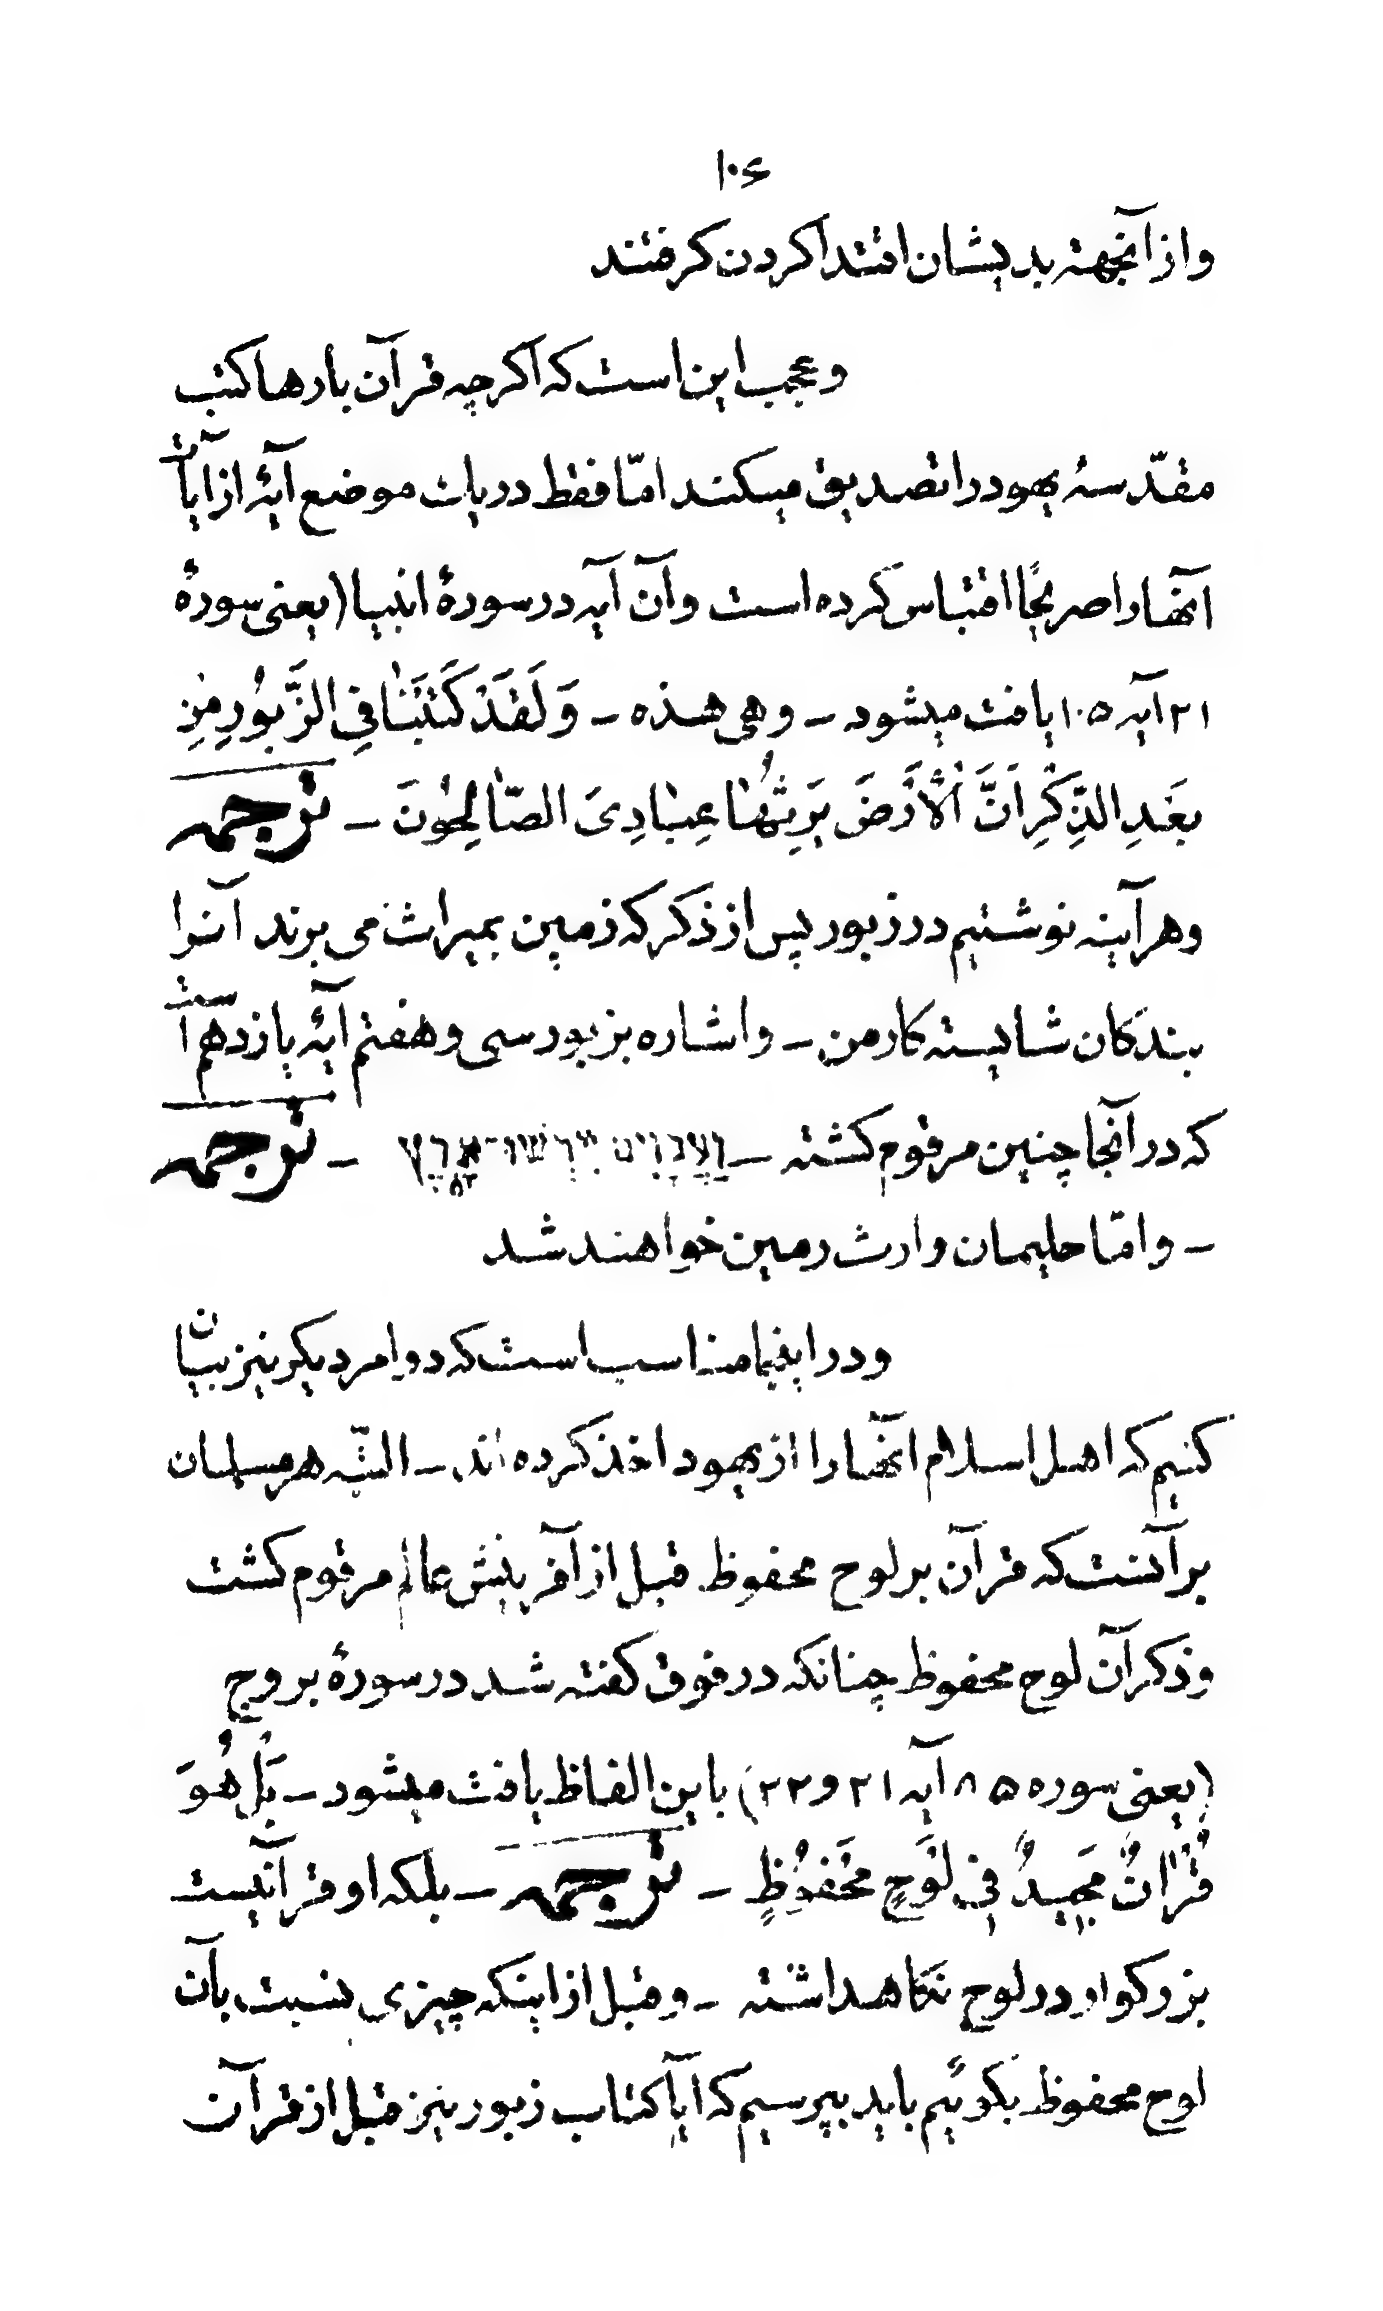 ۱۰۶
و از آنجهة بدیشان اقتدا کردن کرفتند
و عجب این است که اکرچه قرآن بارها کتب
مقدّسهٔ یهود را تصدیق میکند امّا فقط در یک موضع آیهٔ از آیات
انها را صریحًا اقتباس کرده است و آن آیه در سورهٔ انبیا (یعنی سورهٔ
۲۱ آیه ۱۰۵) یافت میشود – و هی هذه – وَ لَقَدْ كَتَبْنَا فِي الزَّبُورِ مِنْ
بَعْدِ الذِّكْرِ اَنَّ الْاَرْضَ يَرِثُهَا عِبَادِيَ الصَّالِحُونَ – ترجمه
و هر آینه نوشتیم در زبور پس از ذکر که زمین بمیراث می برند آنرا
بندکان شایسته کار من – و اشاره بزبور سی و هفتم آیهٔ یازدهم است
که در آنجا چنین مرقوم کشته – וַעֲנָוִים יִירְשׁוּ־אָרֶץ – ترجمه
– و امّا حلیمان وارث زمین خواهند شد
و در اینجا مناسب است که دو امر دیکر نیز بیان
کنیم که اهل اسلام انها را از یهود اخذ کرده اند – البتّه هر مسلمان
بر آنست که قرآن بر لوح محفوظ قبل از آفرینش عالم مرقوم کشت
و ذکر آن لوح محفوظ چنانکه در فوق کفته شد در سورهٔ بروج
(یعنی سوره ۸۵ آیه ۲۱ و ۲۲) باین الفاظ یافت میشود – بَلْ هُوَ
قُرْاٰنٌ مَجِيدٌ فِي لَوْحٍ مَحْفُوظٍ – ترجمه – بلکه او قرآنیست
بزرکوار در لوح نکاهداشته – و قبل از اینکه چیزی نسبت بآن
لوح محفوظ بکوئیم باید بپرسیم که آیا کتاب زبور نیز قبل از قرآن